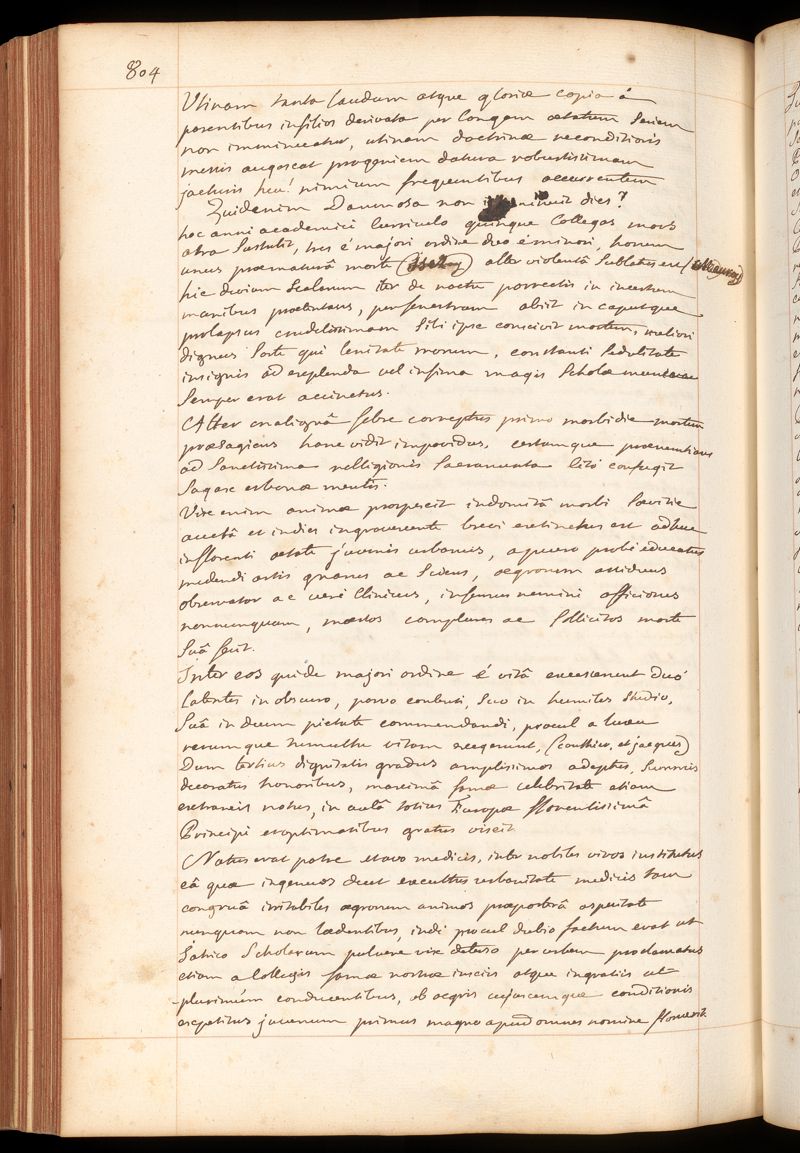 804
Utinam tanta laudum atque gloriæ copia á
parentibus in filios derivata per longam ætatum seriem
non imminueatur, utinam doctrinæ reconditioris
messis augescat progeniem datura robustissimam
jacturis heu! nimium frequentibus occurrentem
Quidenim Damnosa non imminuit dies?
hoc anni academici curriculo quinque Collegas mors
atra Sustulit, tres é majori ordine duo é minori, horum
unus præmaturâ morte alter violentâ Sublatus est
hic deviam Scalarum iter de nocte porrectis in incertum
manibus prætentans, per fenestram abiit in caputque
prolapsus crudelissimam Sibi ipse conscivit mortem, meliori
dignus Sorte qui lenitate morum, constanti Sedulitate
insignis ad explenda vel infima magis Scholæ munera
Semper erat accinctus.
Alter malignâ febre correptus primo morbi die mortem
præsagiens hanc vidit impavidus, certamque præveniens
ad Sanctissima relligionis Sacramenta citó confugit
Sagax et bonæ mentis.
Vix enim animæ prospexit indomitâ morbi Sævitie
auctâ et indies ingravescente brevi extinctus est adhuc
in florenti ætate juvenis urbanus, a puero probé educatus
medendi artis gnarus ac Sciens, ægrorum assiduus
observator ac veré Clinicus, infensus nemini officiosus
nonnunquam, mæstos complures ac Sollicitos morte
Suâ fecit.
Inter eos qui de majori ordine é vitâ excesserunt Duó
Latentes in obscuro, parvo contenti, Suo in humiles Studio,
Suâ in deum pietate commendandi, procul a luxu
rerumque tumultu vitam exegerunt, (couthier, et jacques)
Dum tertius dignitatis gradus amplissimos adeptus, Summis
decoratus honoribus, maximâ famæ celebritate etiam
extraneis notus, in aulâ totius Europæ florentissimâ
Principi et optimatibus gratus vixit
Natus erat patre et avo medicis, inter nobiles viros institutus
eâ quæ ingenuos decet excultus urbanitate medicis tam
congruâ irritabiles ægrorum animos præposterâ asperitate
nunquam non lædentibus, indé procul dubio factum erat ut
Latrico Scholarum pulvere vix deterso per urbem proclamatus
etiam a Collegis famæ nostræ insciis atque ingratis ut
-plurimúm conducentibus, ab ægris cujuscumque conditionis
expetitus juvenum primus magno apud omnes nomine floruerit.